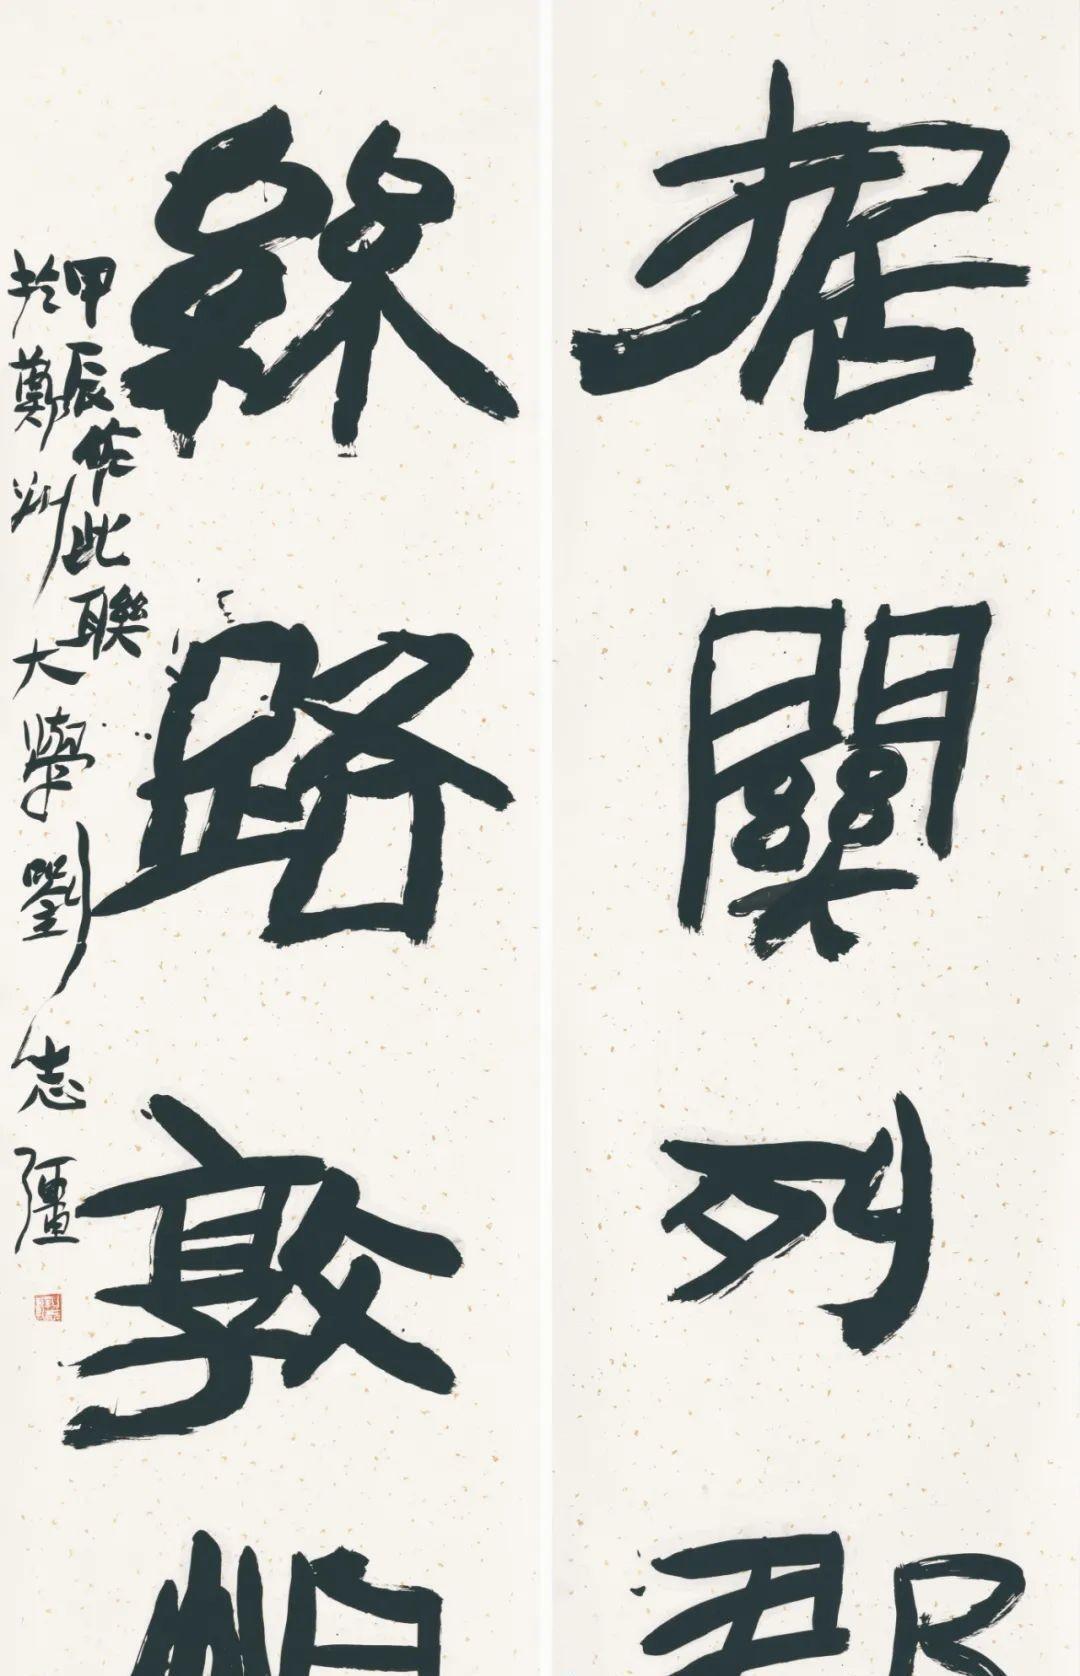 据關列郡
絲路敦煌
甲辰作此聯
於鄭州大學劉志彊